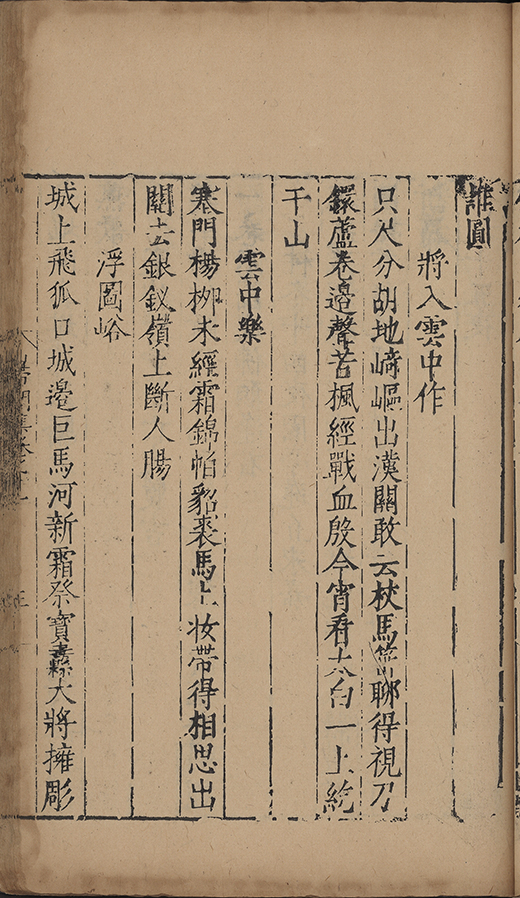 誰圓
將入雲中作
只尺分胡地﨑嶇出漢關敢云杖馬箠聊得視刀
鐶蘆卷邉聲苦楓經戰血殷今宵看太白一上紇
干山
雲中樂
塞門楊栁未經霜錦帕貂裘馬上妝帶得相思出
關去銀釵嶺上斷人腸
浮圖峪
城上飛狐口城邉巨馬河新霜祭寳纛大將擁彫